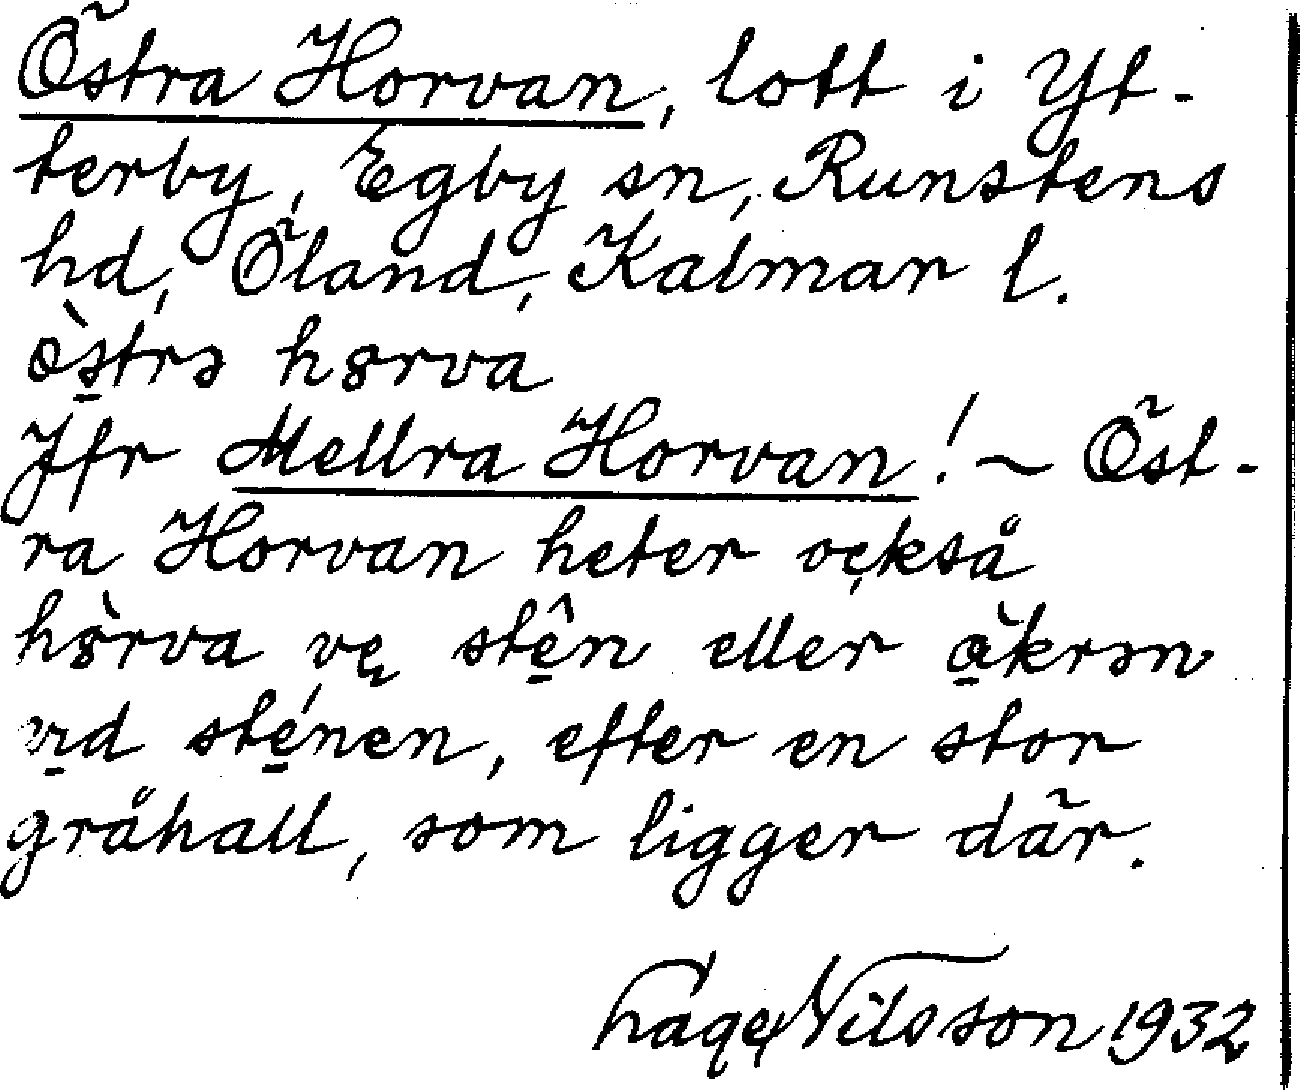 Östra Horvan, lott i Yt-
terby, Egby sn, Runstens
hd, Öland, Kalmar l.
ö̀strə hɷrva
Jfr Mellra Horvan! ~ Öst-
ra Horvan heter också
hɷ̀rva vę stên eller åkrən
vid sténen, efter en stor
gråhall, som ligger där.
Nilsson 1932